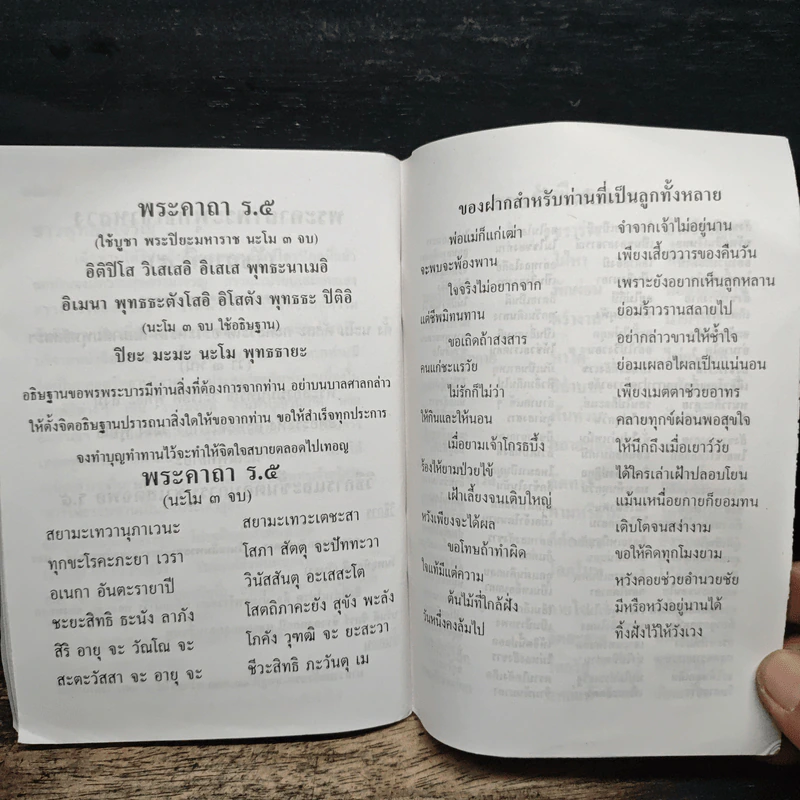 พระคาถา ร.๕
(ใช้บูชา พระปิยะมหาราช นะโม ๓ จบ)
อิติปิโส วิเสเสอิ อิเสเส พุทธะนาเมอิ
อิเมนา พุทธะตังโสอิ อิโสตัง พุทธะ ปิติอิ
(นะโม ๓ จบ ใช้อธิษฐาน)
ปิยะ มะมะ นะโม พุทธธายะ
อธิษฐานขอพรพระบารมีท่านสิ่งที่ต้องการจากท่าน อย่าบนบาลศาลกล่าว
ให้ตั้งจิตอธิษฐานปรารถนาสิ่งใดให้ขอจากท่าน ขอให้สำเร็จทุกประการ
จงทำบุญทำทานไว้จะทำให้จิตใจสบายตลอดไปเทอญ
พระคาถา ร.๕
(นะโม ๓ จบ)
สยามะเทวานุภาเวนะ สยามะเทวะเตชะสา
ทุกขะโรคะภะยา เวรา โสภา สัตตุ จะปัททะวา
อเนกา อันตะรายาปิ วินัสสันตุ อะเสสะโต
ชะยะสิทธิ ธะนัง ลาภัง โสตถิภาคะยัง สุขัง พะลัง
สิริ อายุ จะ วัณโณ จะ โภคัง วุฑฒิ จะ ยะสะวา
สะตะวัสสา จะ อายุ จะ ชีวะสิทธิ ภะวันตุ เม
ของฝากสำหรับท่านที่เป็นลูกทั้งหลาย
พ่อแม่ก็แก่เฒ่า จำจากเจ้าไม่อยู่นาน
จะพบจะพ้องพาน เพียงเสี้ยววารของคืนวัน
ใจจริงไม่อยากจาก เพราะยังอยากเห็นลูกหลาน
แต่ชีพมิทนทาน ย่อมร้าวรานสลายไป
ขอเถิดถ้าสงสาร อย่ากล่าวขานให้ช้ำใจ
คนแก่ชะแรวัย ย่อมเผลอไผลเป็นแน่นอน
ไม่รักก็ไม่ว่า เพียงเมตตาช่วยอาทร
ให้กินและให้นอน คลายทุกข์ผ่อนพอสุขใจ
เมื่อยามเจ้าโกรธขึ้ง ให้นึกถึงเมื่อเยาว์วัย
ร้องไห้ยามป่วยไข้ ได้ใครเล่าเฝ้าปลอบโยน
เฝ้าเลี้ยงจนเติบใหญ่ แม้นเหนื่อยกายก็ยอมทน
หวังเพียงจะได้ผล เติบโตจนสง่างาม
ขอโทษถ้าทำผิด ขอให้คิดทุกโมงยาม
ใจแท้มีแต่ความ หวังคอยช่วยอำนวยชัย
ต้นไม้ที่ใกล้ฝั่ง มีหรือหวังอยู่นานได้
วันหนึ่งคงล้มไป ทิ้งฝั่งไว้ให้วังเวง